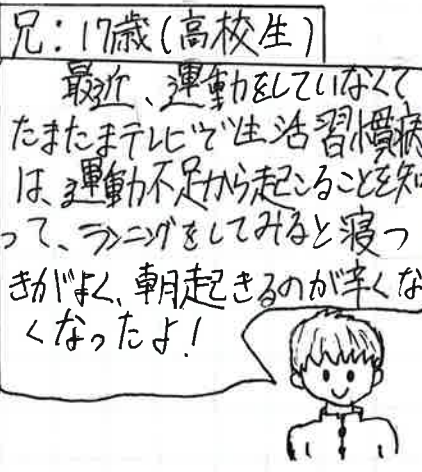 兄：17歳(高校生)
最近、運動をしていなくて
たまたまテレビで生活習慣病
は、運動不足から起こることを知
って、ランニングをしてみると寝つ
きがよく、朝起きるのが辛くな
くなったよ！